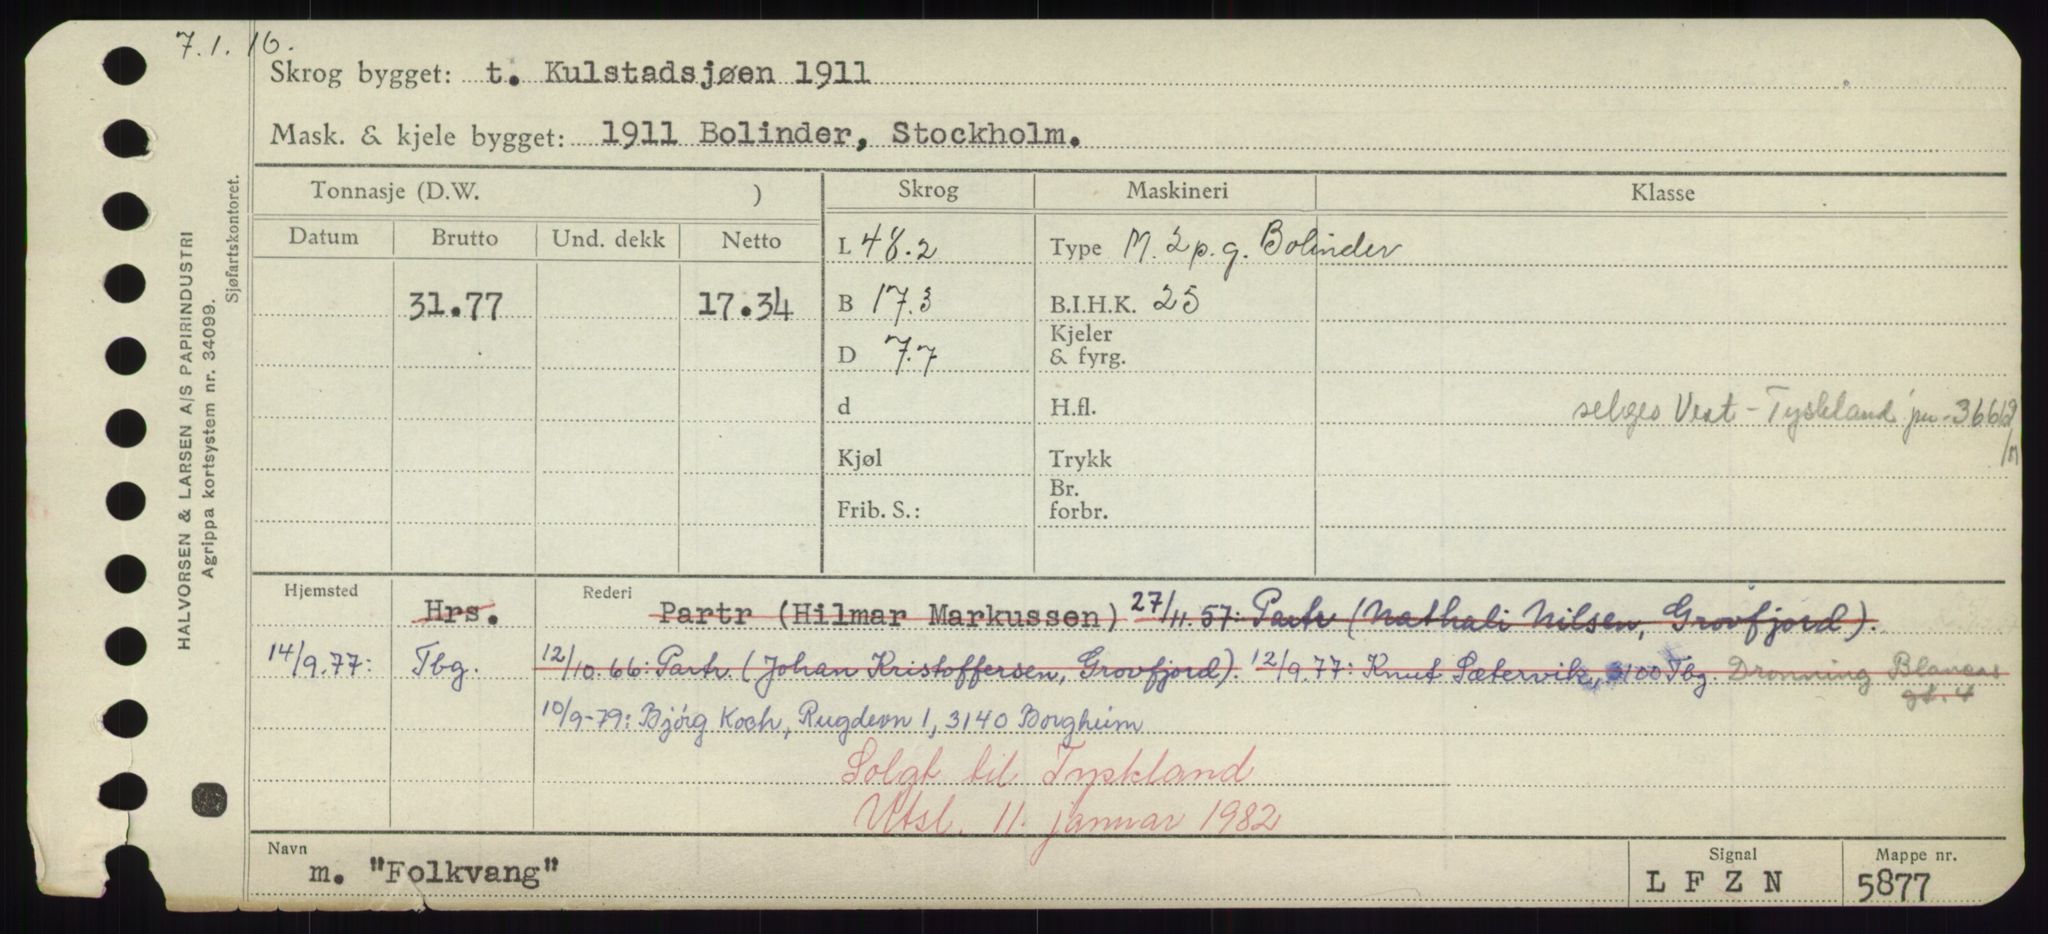 7.1.16.
Skrog bygget: t. Kulstadsjøen 1911
Mask. & kjele bygget: 1911 Bolinder, Stockholm.
HALVORSEN & LARSEN A/S PAPIRINDUSTRI
Agrippa kortsystem nr. 34099.
Sjøfartskontoret.
Tonnasje (D.W. ) Skrog Maskineri Klasse
Datum Brutto Und. dekk Netto
L 48.2 Type M. 2 p. g. Bolinder
31.77 17.34 B 17.3 B.I.H.K. 25
D 7.7 Kjeler
& fyrg.
d H.fl. selges Vest-Tyskland
Kjøl Trykk
Frib. S.: Br.
forbr.
Hjemsted Hrs. Rederi Partr (Hilmar Markussen) 27/11.57: Partr (Nathali Nilsen, Grovfjord).
14/9.77: Tbg. 12/10.66: Partr. (Johan Kristoffersen, Grovfjord). 12/9.77: Knut Sætervik, 3100 Tbg. Dronning Blancas
gt. 4
10/9-79: Bjørg Koch, Rugdevn 1, 3140 Borgheim
Solgt til Tyskland
Utsl. 11. januar 1982
Navn m. "Folkvang" Signal L F Z N Mappe nr. 5877